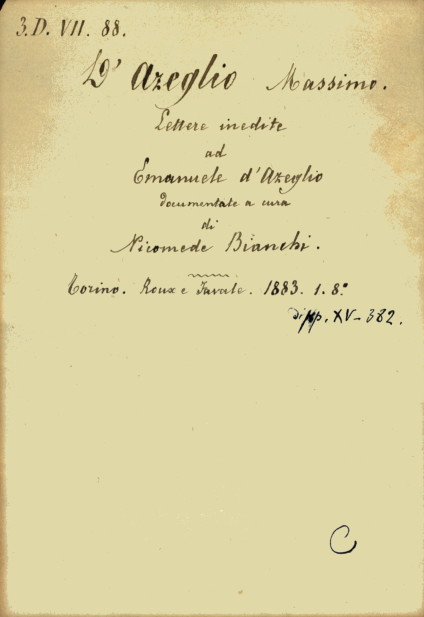 3. D. VII. 88.
D' Azeglio Massimo.
Lettere inedite
ad
Emanuele d'Azeglio
documentate a cura
di
Nicomede Bianchi.
Torino. Roux e Favale. 1883. 1. 8.°
di pp. XV-382.
C